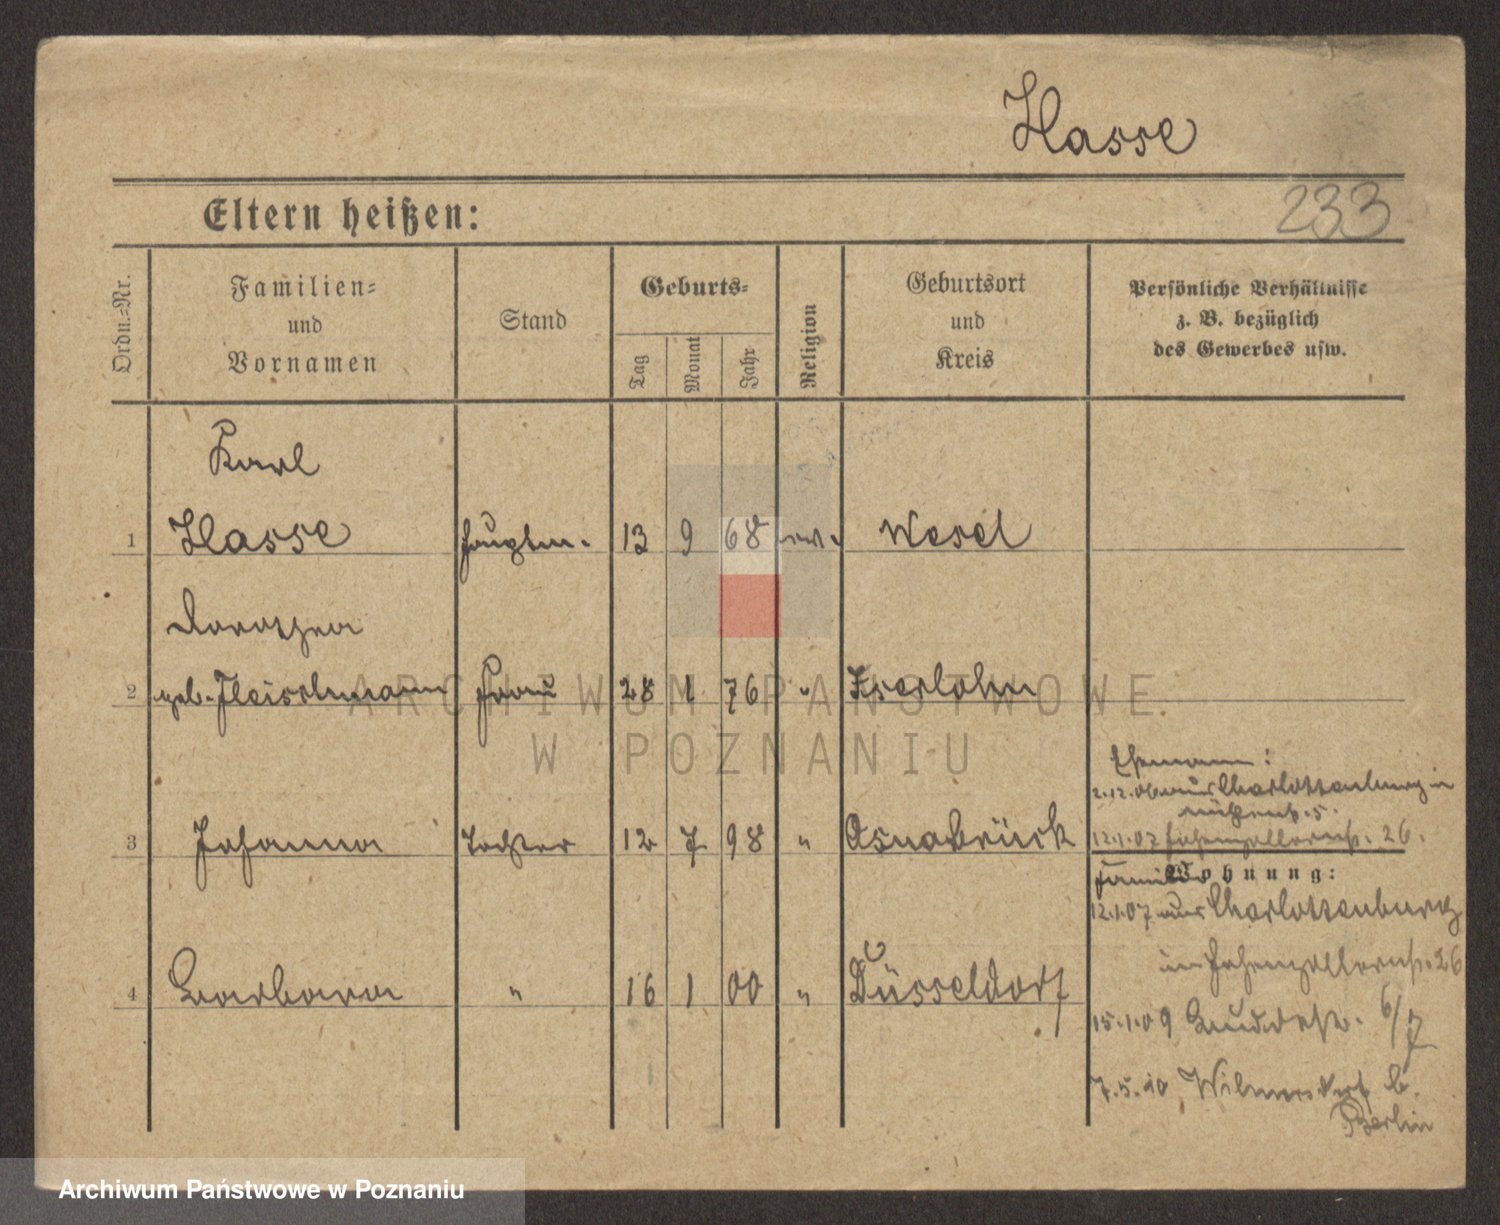 Hasse
233
Eltern heißen:
Ordn.-Nr.
Familien-
und
Vornamen
Stand
Geburts-
Tag
Monat
Jahr
Religion
Geburtsort
und
Kreis
Persönliche Verhältnisse
z. B. bezüglich
des Gewerbes usw.
Karl
1 Hasse Hauptm. 13 9 68 ev. Wesel
Dorothea
2 geb. Fleischmann Frau 28 1 76 " Iserlohn
Ehemann:
2.12.06 aus Charlottenburg in
12.1.07 Hohenzollernstr. 26.
3 Johanna Tochter 12 7 98 " Osnabrück
Familie Wohnung:
12.1.07 aus Charlottenburg
in Hohenzollernstr. 26
4 Barbara " 16 1 00 " Düsseldorf
15.1.09 6/7
7.5.10 Wilmersdorf b.
Berlin
ARCHIWUM PAŃSTWOWE
W POZNANIU
Archiwum Państwowe w Poznaniu